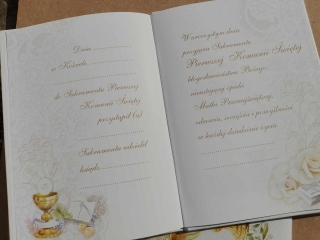 Dnia ........................
w Kościele........................
do Sakramentu Pierwszej
Komunii Świętej
przystąpił (a)
........................
Sakramentu udzielił
ksiądz........................
........................
W uroczystym dniu
przyjęcia Sakramentu
Pierwszej Komunii Świętej
błogosławieństwa Bożego,
nieustającej opieki
Matki Przenajświętszej,
zdrowia, szczęścia i pomyślności
w każdej dziedzinie życia
........................
........................